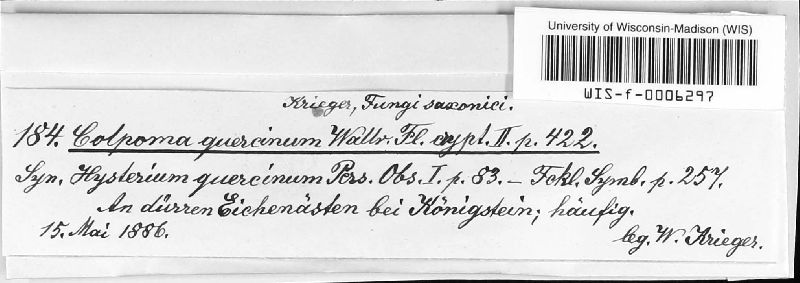 University of Wisconsin-Madison (WIS)
WIS-f-0006297
Krieger, Fungi saxonici.
184. Colpoma quercinum Wallr. Fl. crypt. II. p. 422.
Syn. Hysterium quercinum Pers. Obs. I. p. 83. – Fckl. Symb. p. 257.
An dürren Eichenästen bei Königstein; häufig.
15. Mai 1886.
leg. W. Krieger.